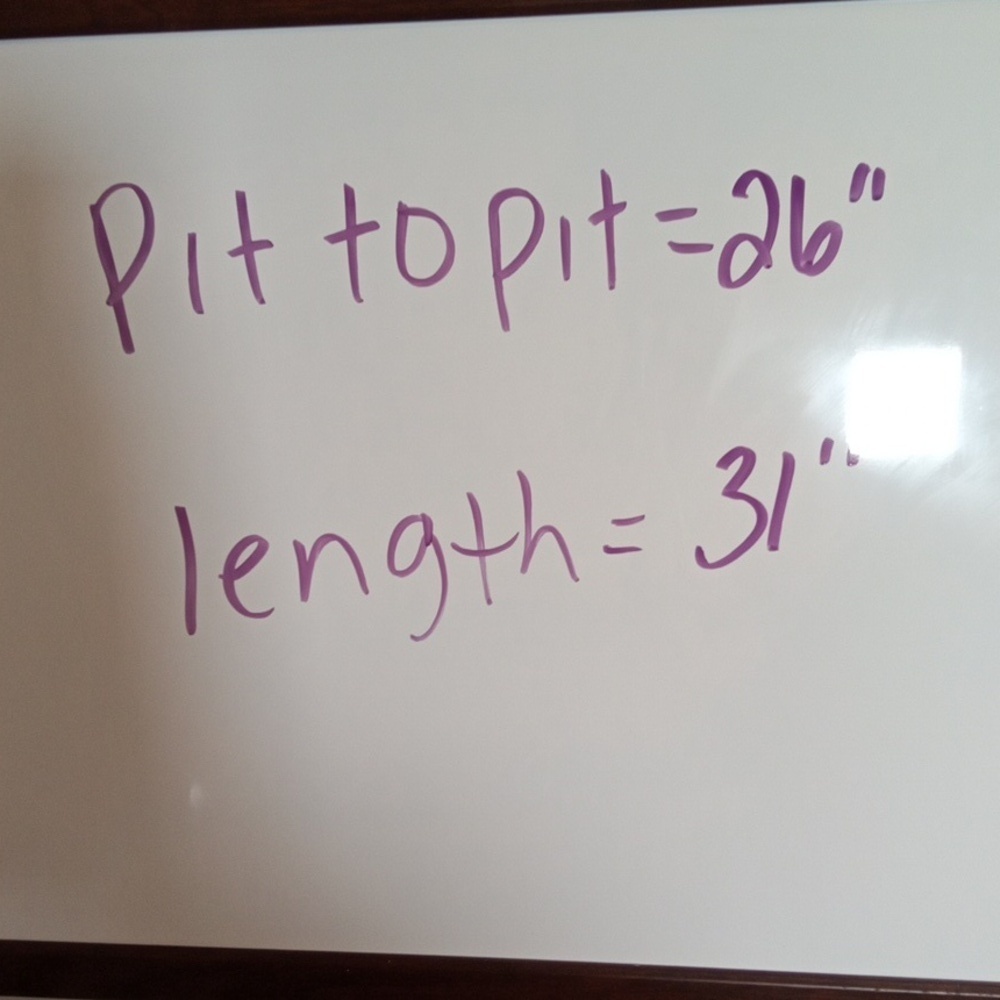 Pit to pit = 26"
length = 31"